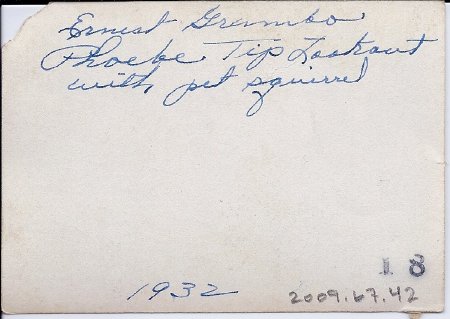 Ernest Grumbo
Phoebe Tip Lookout
with pet squirrel
18
1932
2009.67.42